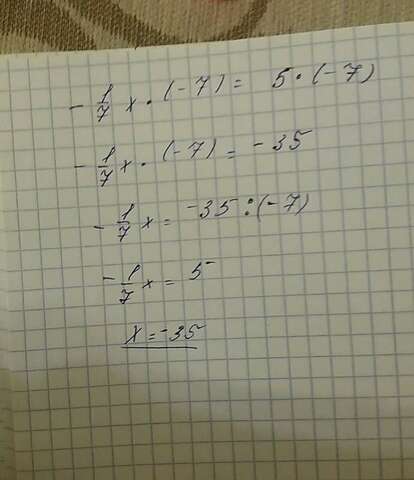 - 1/7 x · (-7) = 5 · (-7)
- 1/7 x · (-7) = -35
- 1/7 x = -35 : (-7)
- 1/7 x = 5
x = -35